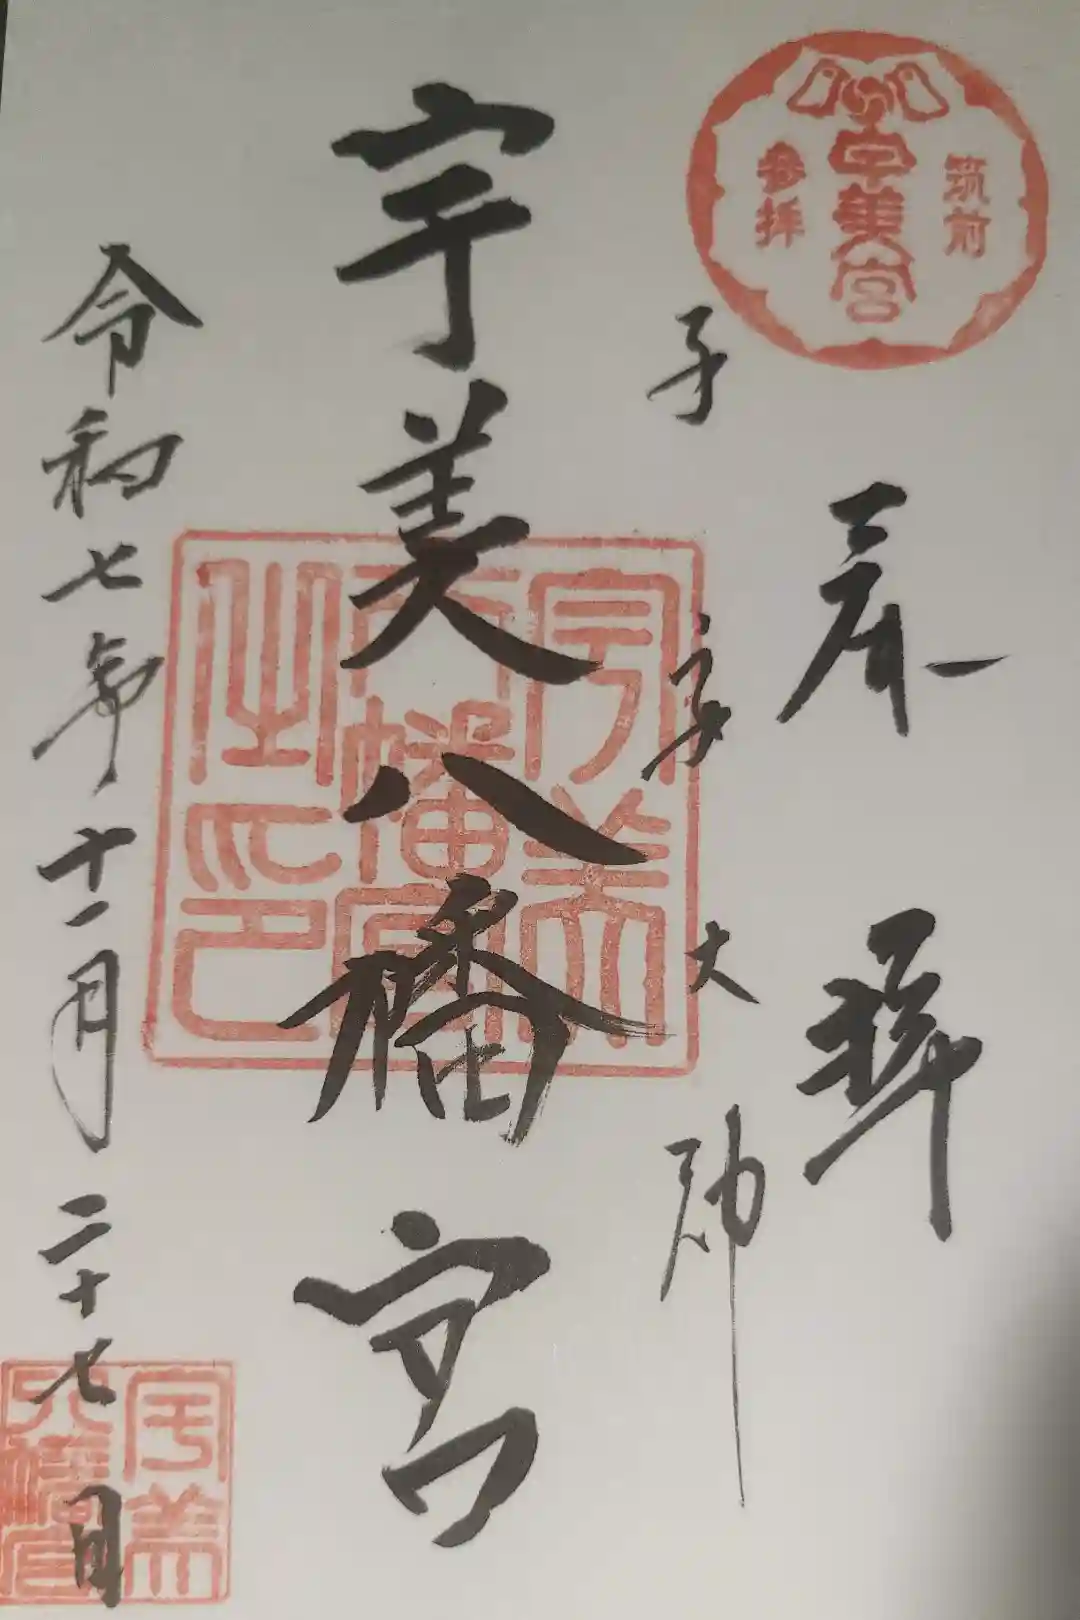 筑前
宇美宮
參拝
奉拝
子安大神
宇美八幡宮
宇美
八幡宮
之印
令和七年十一月二十七日
宇美
八幡宮